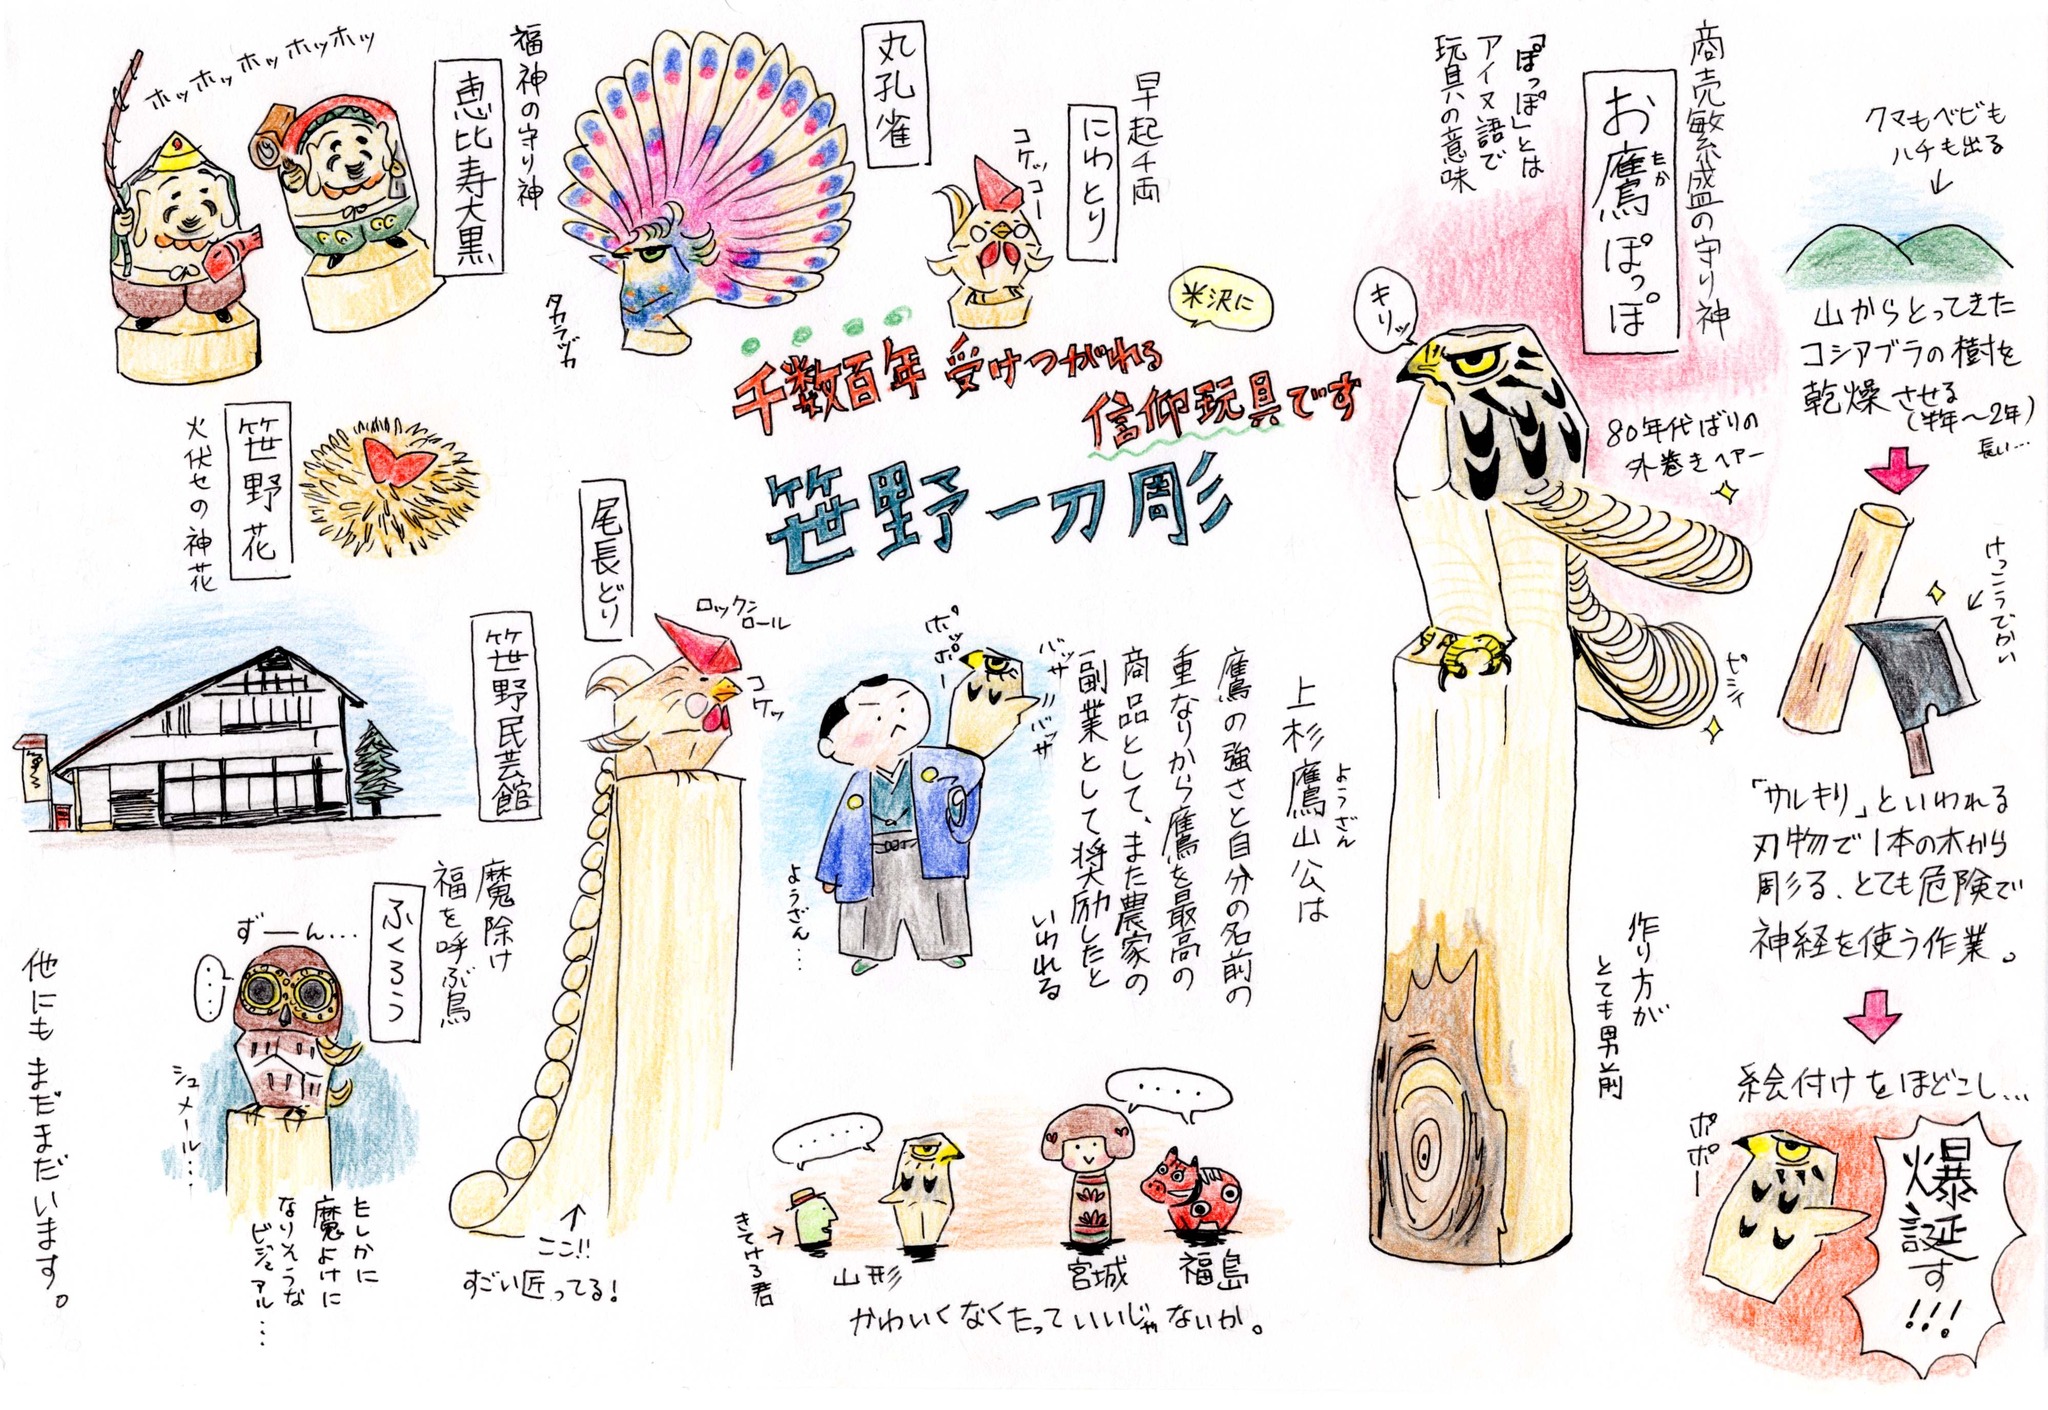 商売敏繁盛の守り神
お鷹ぽっぽ
たか
「ぽっぽ」とは
アイヌ語で
玩具の意味
キリッ
80年代ばりの
外巻きヘアー
ビシィ
作り方が
とても男前
クマもヘビも
ハチも出る
山からとってきた
コシアブラの樹を
乾燥させる
(半年〜2年)
長い…
けっこうでかい
「サルキリ」といわれる
刃物で1本の木から
彫る、とても危険で
神経を使う作業。
絵付けをほどこし…
ポポー
爆誕す!!!
米沢に
千数百年 受けつがれる
信仰玩具です
笹野一刀彫
早起千両
にわとり
コケッコー
丸孔雀
タカラヅカ
福神の守り神
恵比寿大黒
ホッホッホッホッホッ
笹野花
火伏せの神花
尾長どり
ロックンロール
コケッ
ここ!!
すごい匠ってる!
上杉鷹山公は
ようざん
鷹の強さと自分の名前の
重なりから鷹を最高の
商品として、また農家の
副業として奨励したと
いわれる
ポッポー
バッサ
バッサ
ようざん…
笹野民芸館
魔除け
福を呼ぶ鳥
ふくろう
ずーん…
シュメール…
たしかに
魔よけに
なりそうな
ビジュアル…
きてけろ君
山形
宮城
福島
かわいくなくたっていいじゃないか。
他にもまだまだいます。